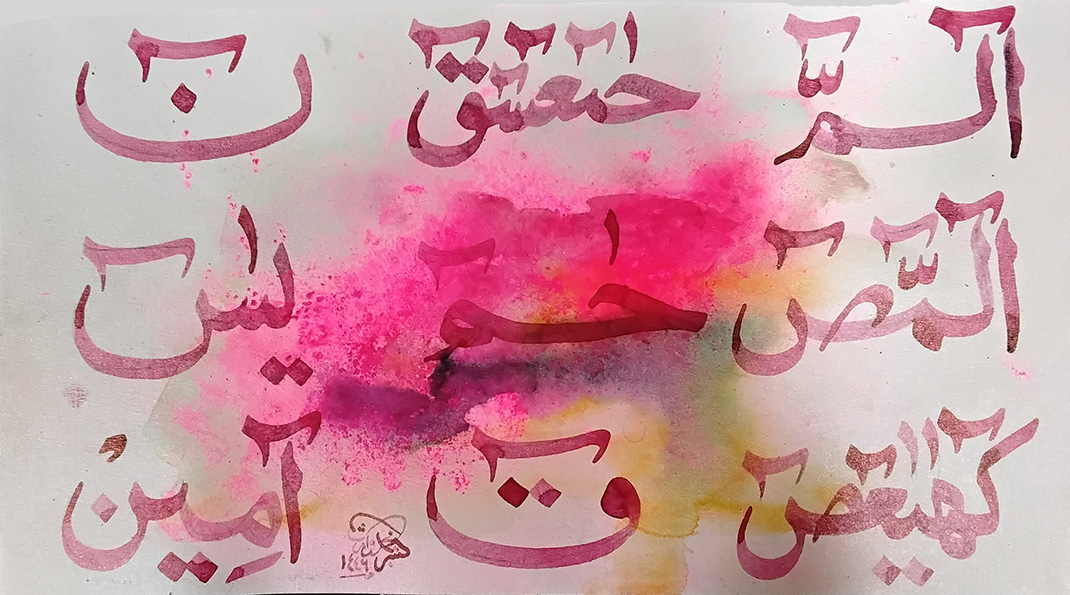 الٓمّٓ حٰمٓعٓسٓقٓ نٓ
الٓمّٓصٓ حٰمٓ يٰسٓ
كٓهٰيٰعٓصٓ قٓ آمِينْ
١٤٤٦